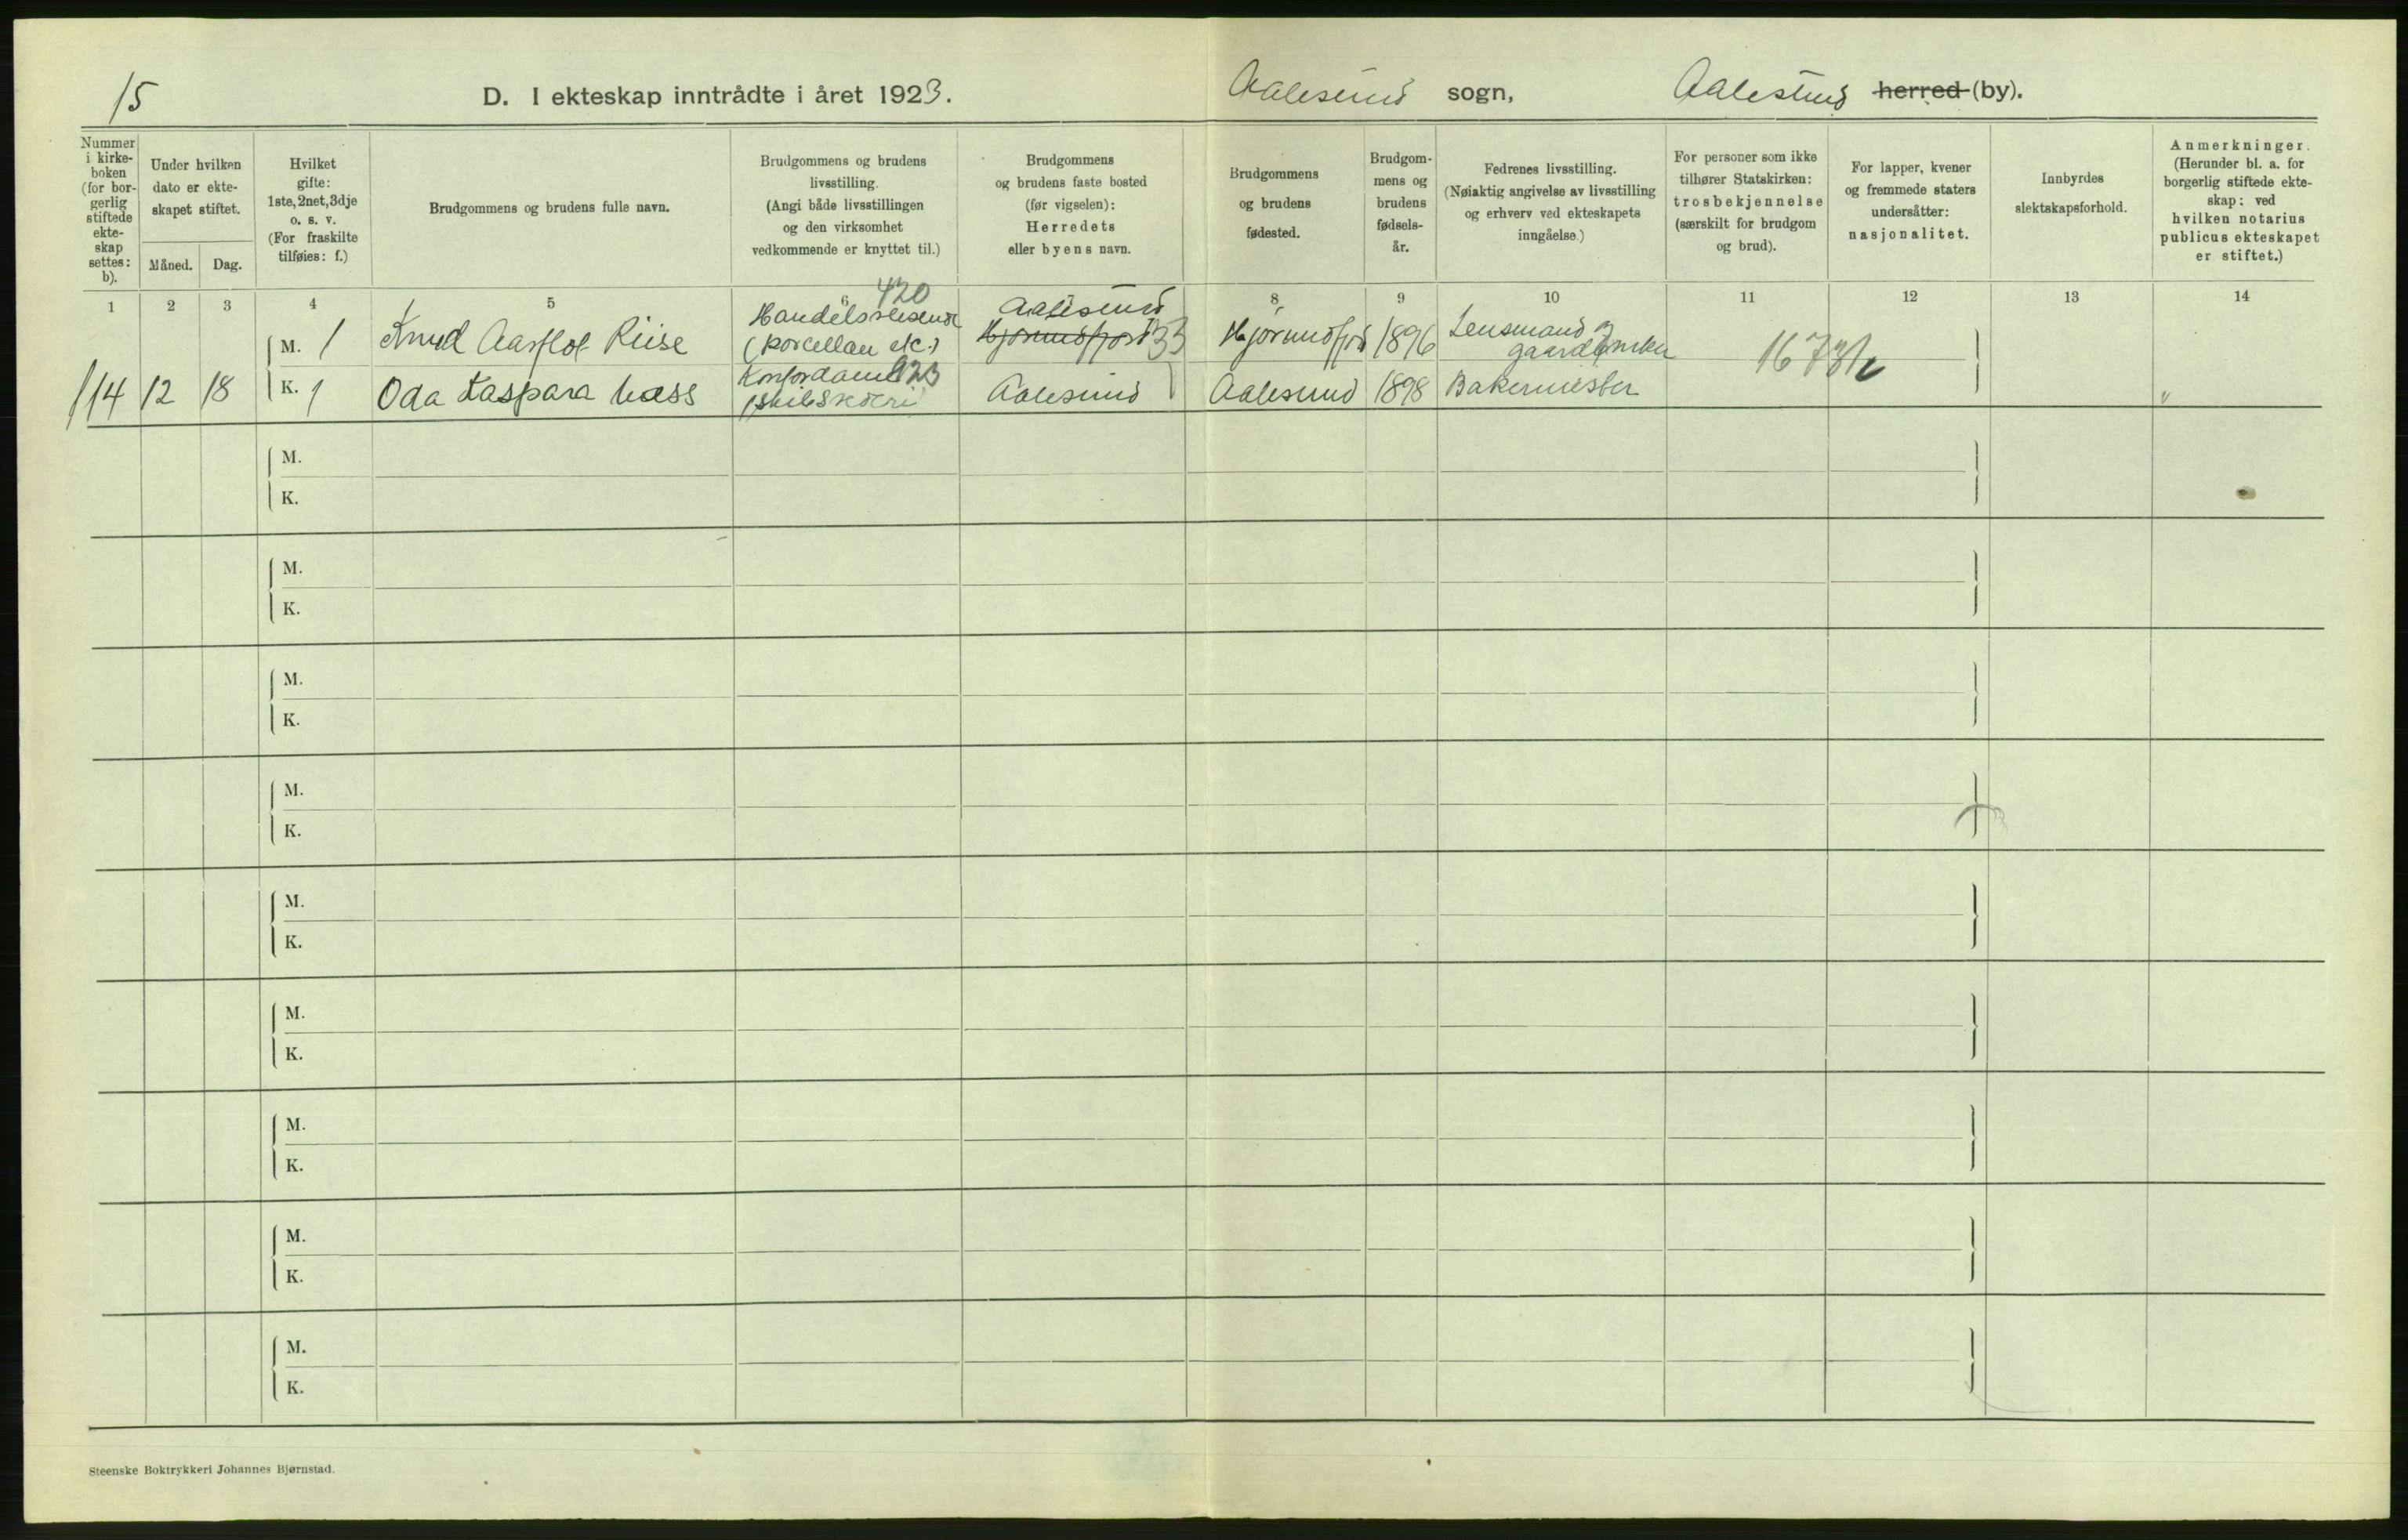 15
D. I ekteskap inntrådte i året 1923.
Aalesund sogn,
Aalesund herred (by).
Nummer
i kirke-
boken
(for bor-
gerlig
stiftede
ekte-
skap
settes:
b).
Under hvilken
dato er ekte-
skapet stiftet.
Måned.
Dag.
Hvilket
gifte:
1ste, 2net, 3dje
o. s. v.
(For fraskilte
tilføies: f.)
Brudgommens og brudens fulle navn.
Brudgommens og brudens
livsstilling.
(Angi både livsstillingen
og den virksomhet
vedkommende er knyttet til.)
Brudgommens
og brudens faste bosted
(før vigselen):
Herredets
eller byens navn.
Brudgommens
og brudens
fødested.
Brudgom-
mens og
brudens
fødsels-
år.
Fedrenes livsstilling.
(Nøiaktig angivelse av livsstilling
og erhverv ved ekteskapets
inngåelse.)
For personer som ikke
tilhører Statskirken:
trosbekjennelse
(særskilt for brudgom
og brud).
For lapper, kvener
og fremmede staters
undersåtter:
nasjonalitet.
Innbyrdes
slektskapsforhold.
Anmerkninger.
(Herunder bl. a. for
borgerlig stiftede ekte-
skap: ved
hvilken notarius
publicus ekteskapet
er stiftet.)
1 2 3 4 5 6 8 9 10 11 12 13 14
420
Handelsreisende
(porcellan etc.)
Aalesund
Hjørundfjord 33
M. 1 Knud Aarflot Riise
Hjørundfjord 1896 Lensmand
gaardbruker
1673
114 12 18 K. 1 Oda Kaspara
Kontordame 923
Aalesund
Aalesund 1898 Bakermester
"
M.
K.
M.
K.
M.
K.
M.
K.
M.
K.
M.
K.
M.
K.
M.
K.
M.
K.
Steenske Boktrykkeri Johannes Bjørnstad.